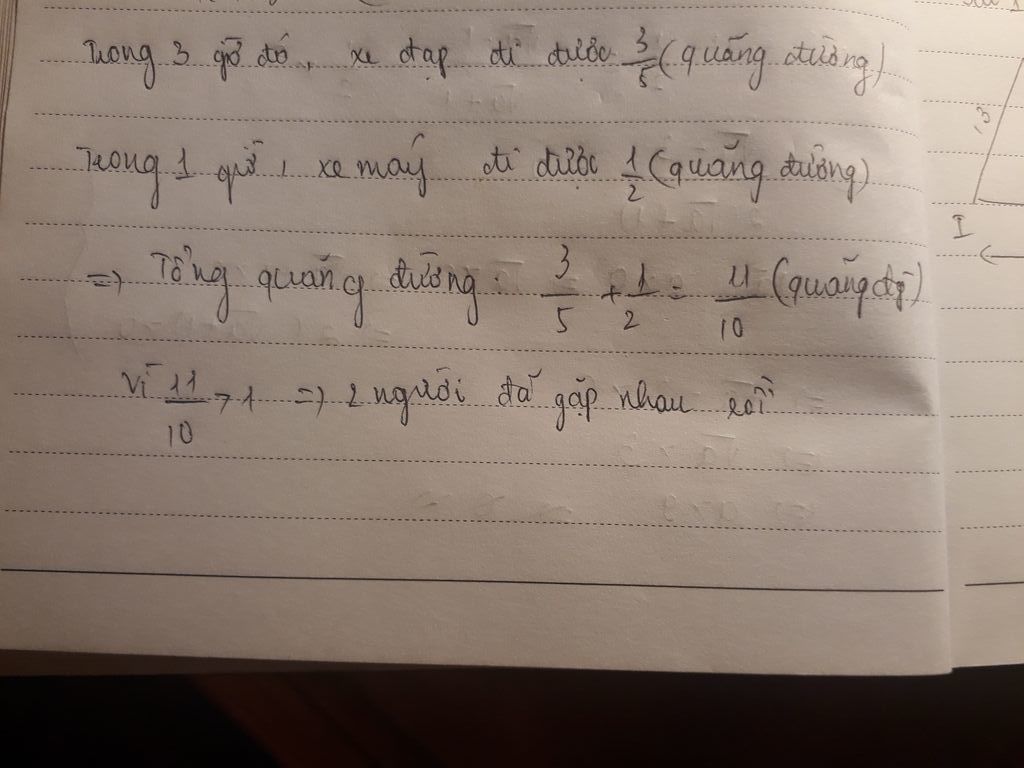 Trong 3 giờ đó, xe đạp đi được 3/5 (quãng đường)
Trong 1 giờ, xe máy đi được 1/2 (quãng đường)
=> Tổng quãng đường: 3/5 + 1/2 = 11/10 (quãng đg)
Vì 11/10 > 1 => 2 người đã gặp nhau rồi
3
I